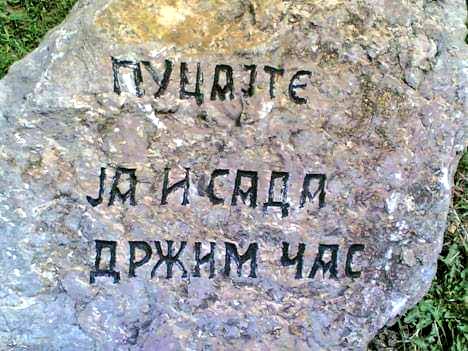 ПУЦАЈТЕ
ЈА И САДА
ДРЖИМ ЧАС